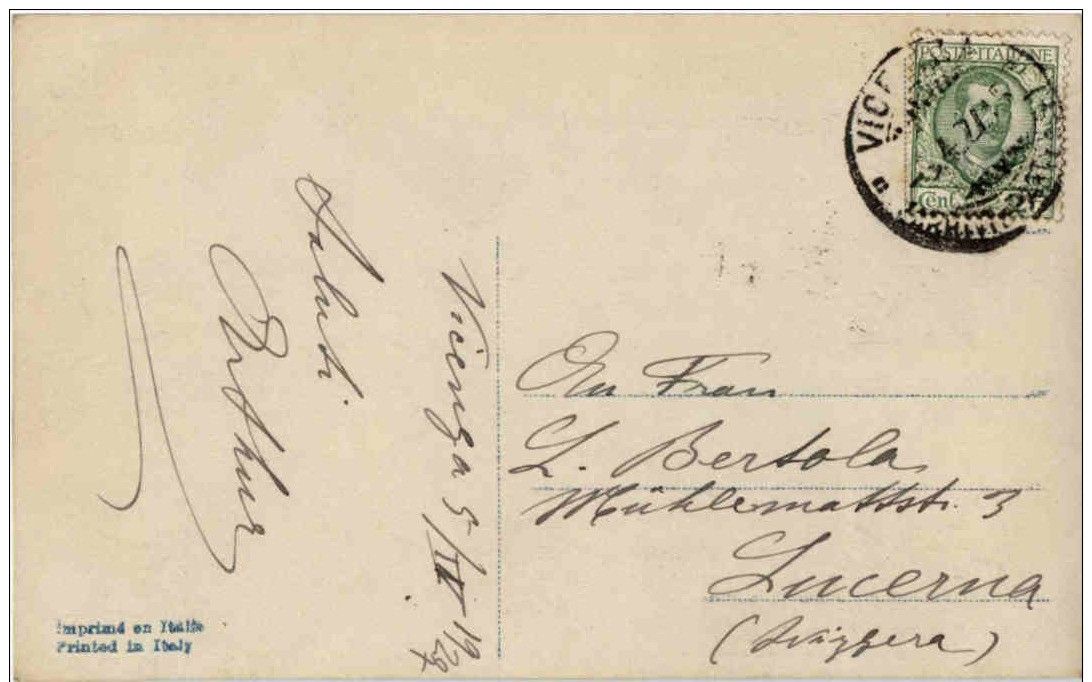 Vicenza 5/IV 1928
Saluti
Arthur
POSTE ITALIANE
Cent
VICENZA
An Frau
L. Bertola
Mühlemattstr. 3
Lucerna
(Svizzera)
Imprimé en Italie
Printed in Italy